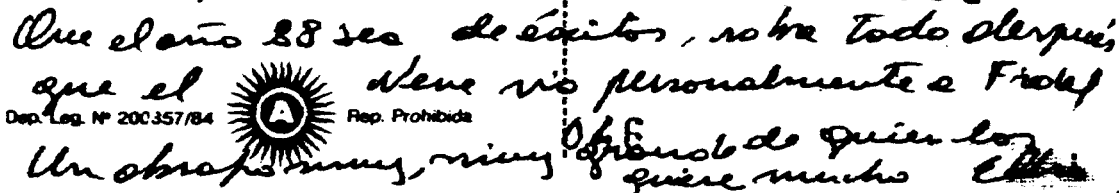 Que el año 88 sea de éxitos, sobre todo después
que el Nene vio personalmente a Fidel
Dep. Leg. Nº 200357/84 A Rep. Prohibida
Un abrazo muy, muy grande de quien los
quiere mucho